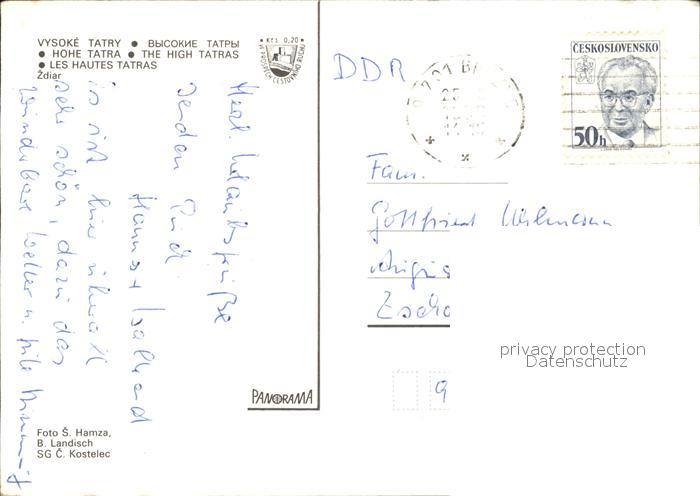 VYSOKÉ TATRY ● ВЫСОКИЕ ТАТРЫ
● HOHE TATRA ● THE HIGH TATRAS
● LES HAUTES TATRAS
Ždiar
Kčs 0,20
VE PROSPĚCH CESTOVNÍHO RUCHU
DDR
ČESKOSLOVENSKO
50h
Fam.
Gottfried
Zscho
9
privacy protection
Datenschutz
Herzl. Urlaubsgrüße
senden
Hannes +
Es ist hier überall
sehr schön, dazu das
wunderbare Wetter u. gute
PANORAMA
Foto Š. Hamza,
B. Landisch
SG Č. Kostelec